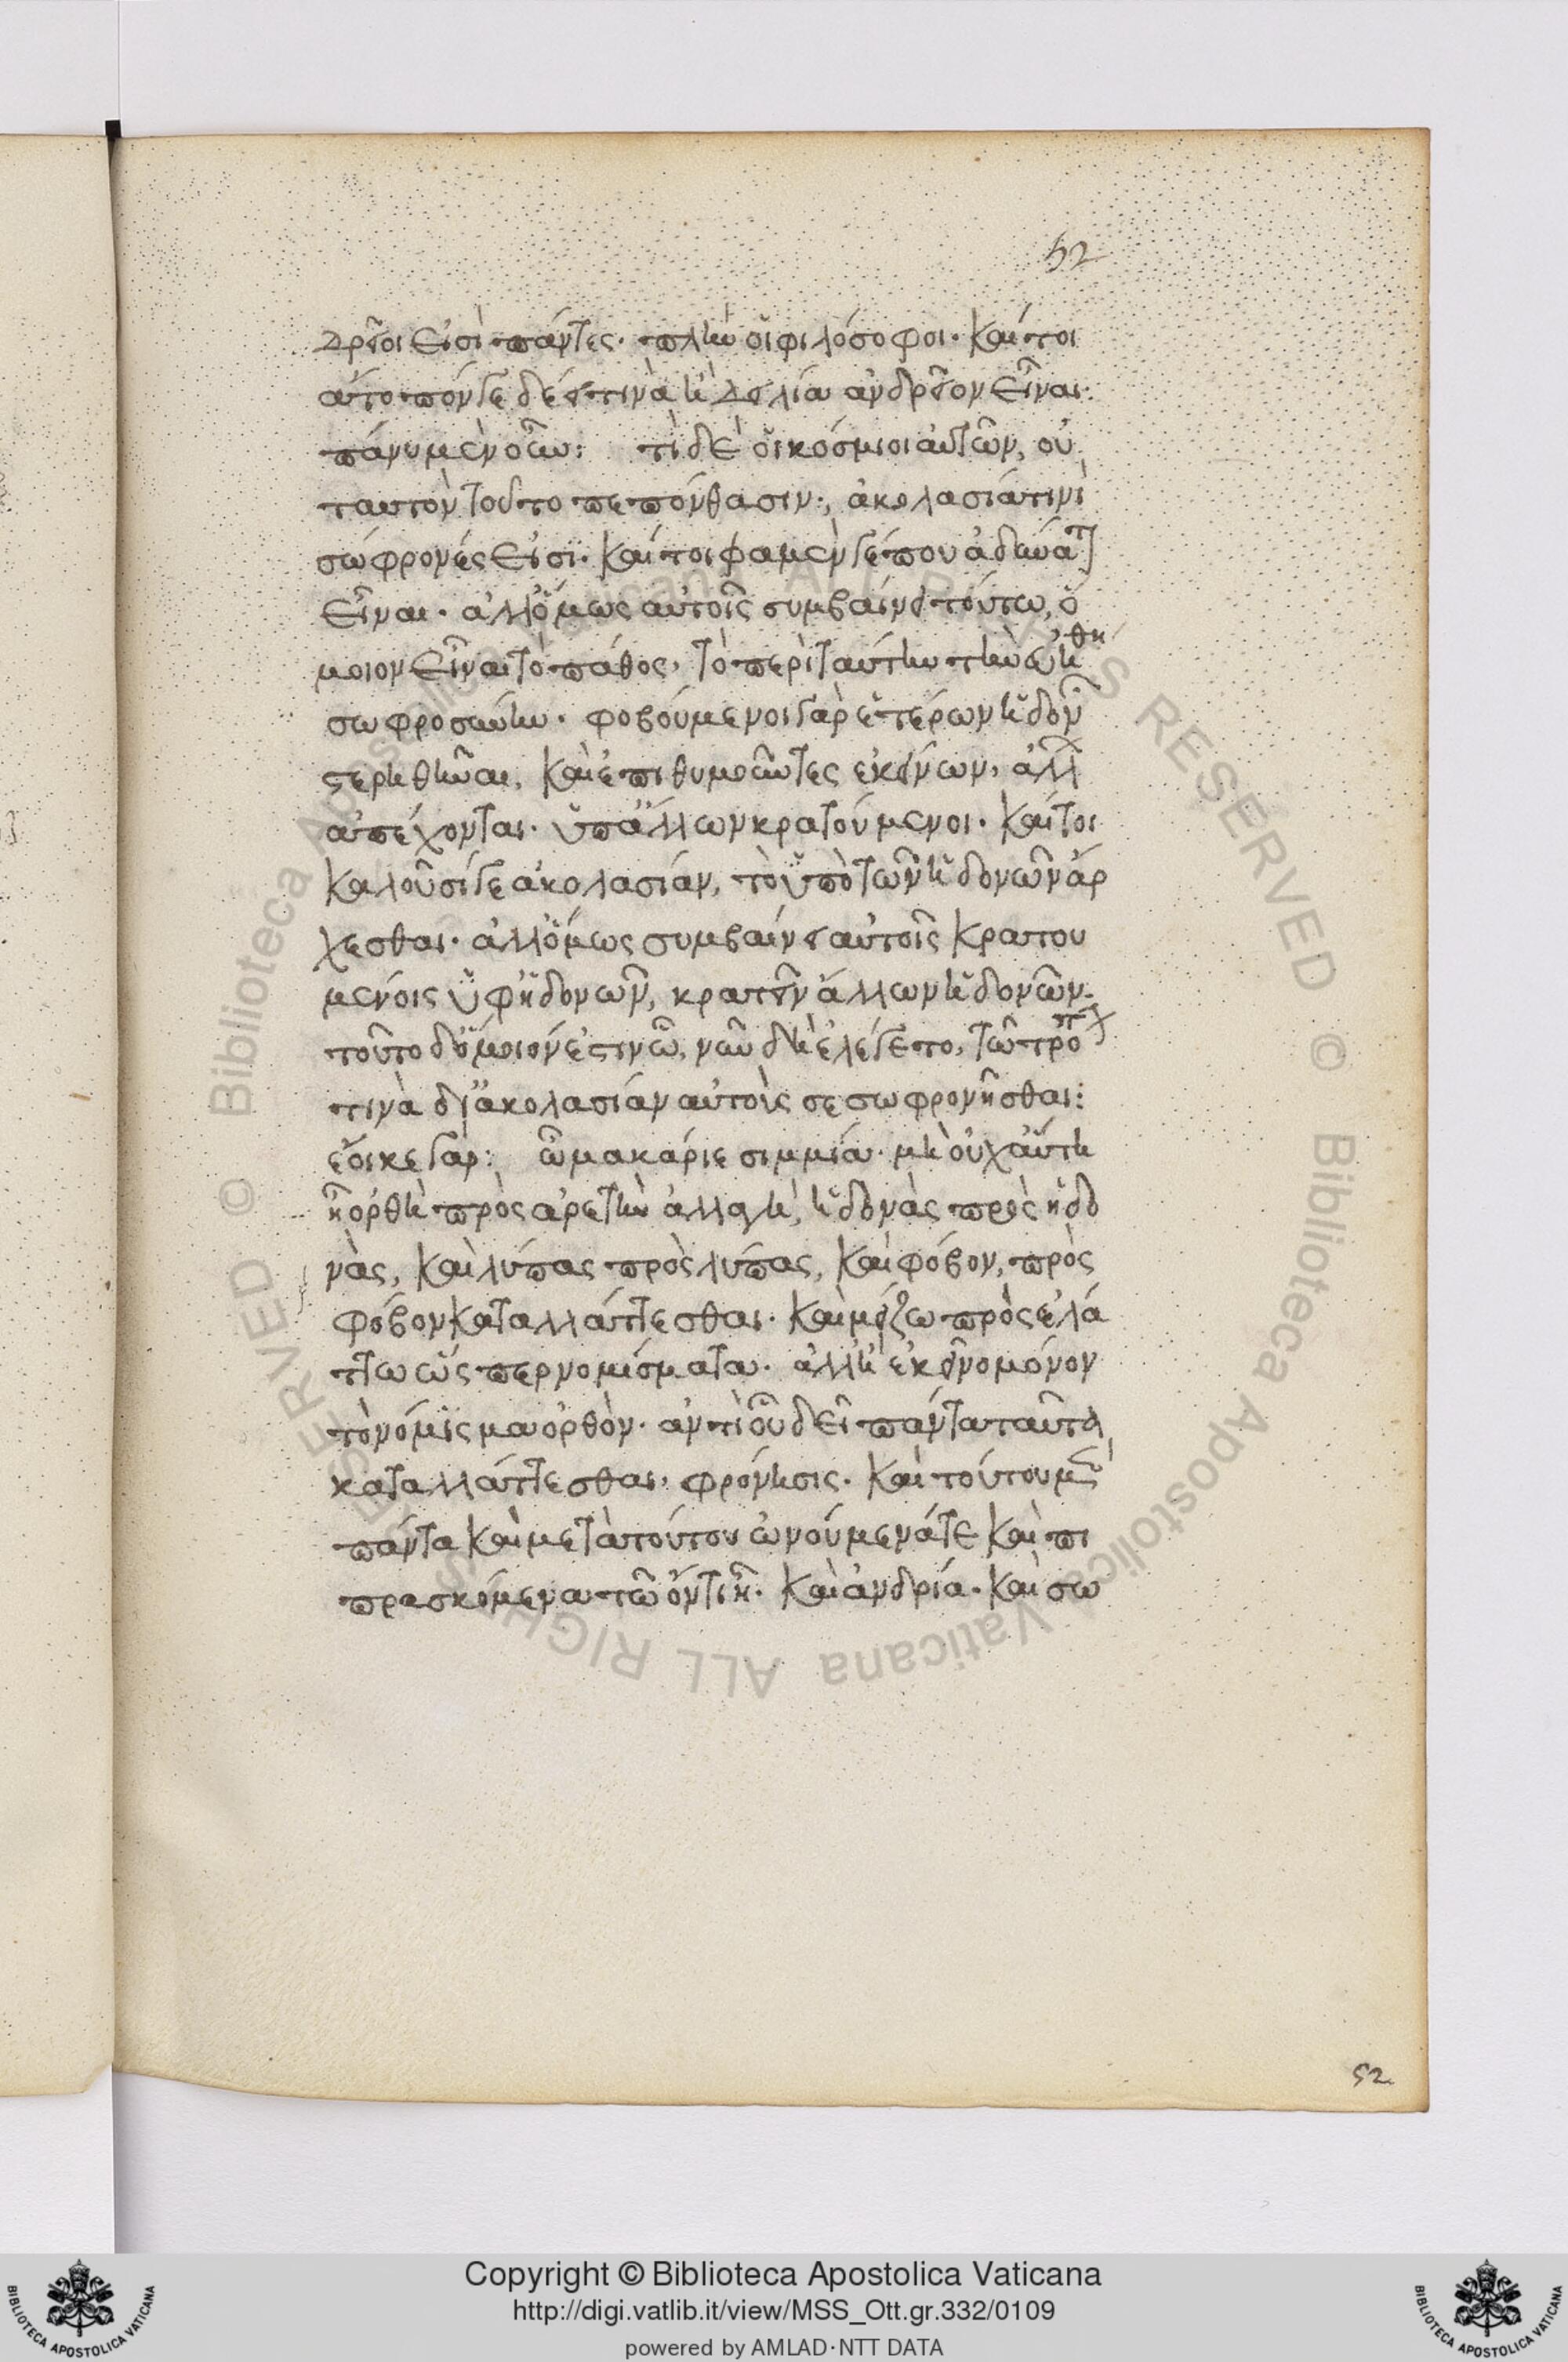 52
δρεῖοι εἰσὶ πάντες· πλὴν οἱ φιλόσοφοι· καίτοι
ἄτοπόν γε δέει τινὰ ἢ δειλία ἀνδρεῖον εἶναι·
πάνυ μὲν οὖν: τί δὲ οἱ κόσμιοι αὐτῶν, οὐ
ταυτὸν τοῦτο πεπόνθασιν; ἀκολασία τινὶ
σώφρονές εἰσί· καίτοι φαμέν γέ που ἀδύνατ
εἶναι· ἀλλ' ὅμως αὐτοῖς συμβαίνει τούτω, ὅ
μοιον εἶναι τὸ πάθος, τὸ περὶ ταύτην τὴν εὐήθη
σωφροσύνην· φοβούμενοι γὰρ ἑτέρων ἡδον
στερηθῆναι, καὶ ἐπιθυμοῦντες ἐκείνων, ἀλλ
ἀπέχονται· ὑπ' ἄλλων κρατούμενοι· καίτοι
καλοῦσί γε ἀκολασίαν, τὸ ὑπὸ τῶν ἡδονῶν ἄρ
χεσθαι· ἀλλ' ὅμως συμβαίνει αὐτοῖς κρατου
μένοις ὑφ' ἡδονῶν, κρατεῖν ἄλλων ἡδονῶν·
τοῦτο δ' ὅμοιόν ἐστιν ὧ, νῦν δὴ ἐλέγετο, τῶ τρόπ
τινὰ δι' ἀκολασίαν αὐτοὺς σεσωφρονῆσθαι:
ἔοικε γάρ: ὦ μακάριε σιμμία· μὴ οὐχ αὕτη
ἦ ὀρθὴ πρὸς ἀρετὴν ἀλλαγή, ἡδονὰς πρὸς ἡδο
νὰς, καὶ λύπας πρὸς λύπας, καὶ φόβον, πρὸς
φόβον καταλλάττεσθαι· καὶ μείζω πρὸς ἐλά
ττω ὥσπερ νομίσματα· ἀλλ' ἦ ἐκεῖνο μόνον
τὸ νόμισμα ὀρθὸν· ἀντὶ οὗ δεῖ πάντα ταῦτα
καταλλάττεσθαι, φρόνησις· καὶ τούτου μὲν
πάντα καὶ μετὰ τούτου ὠνούμενά τε καὶ πι
πρασκόμενα τῶ ὄντι ἦ· καὶ ἀνδρία· καὶ σω
52
Copyright © Biblioteca Apostolica Vaticana
http://digi.vatlib.it/view/MSS_Ott.gr.332/0109
powered by AMLAD·NTT DATA